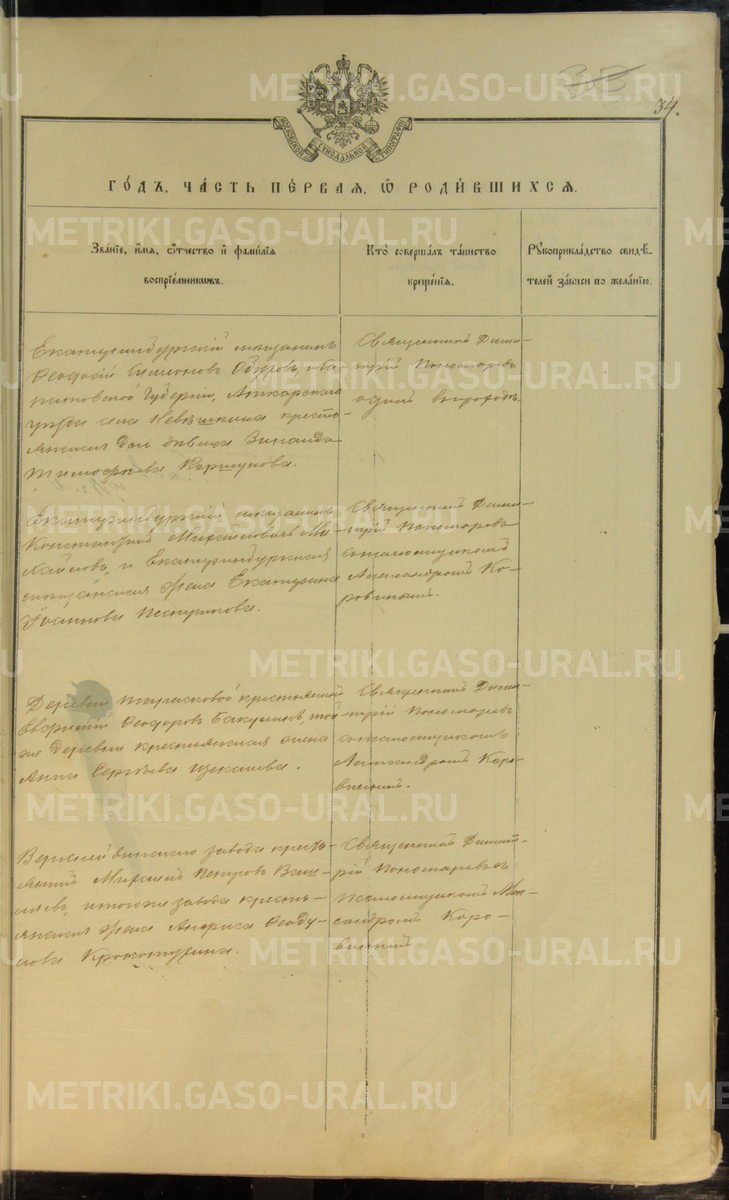 34.
МОСКОВСКОЙ СѴНОДАЛЬНОЙ ТИПОГРАФІИ
ГО́ДЪ, ЧА́СТЬ ПЕ́РВАЯ, Ѽ РОДИ́ВШИХСЯ.
Зва́ніе, и́мя, ѻ́тчество и҆ фамі́лія
воспріе́мниковъ.
Кто̀ соверша́лъ та́инство
креще́нія.
Рꙋкоприкла́дство свидѣ́-
телей за́писи по жела́нію.
Екатеринбургскій мѣщанинъ
Феодосій Симеоновъ
губерніи, Аткарскаго
уѣзда села Невѣжкина кресть-
янская дочь дѣвица Зинаида
Тимофеева Коршунова.
Священникъ Дими-
трій Пономаревъ
одинъ
Екатеринбургскій мѣщанинъ
Константинъ Михайловичъ Ми-
хайловъ, и Екатеринбургская
жена Екатерина
Іоаннова
Священникъ Дими-
трій Пономаревъ
съ псаломщикомъ
Александромъ Ко-
ровинымъ.
Деревни крестьянинъ
Феодоровъ Бакулинъ, той
же деревни крестьянская жена
Анна Сергѣева
Священникъ Дими-
трій Пономаревъ
съ псаломщикомъ
Александромъ Коро-
винымъ.
завода кресть-
янинъ Михаилъ Петровъ
и того же завода кресть-
янская жена Феоду-
лова
Священникъ Димит-
рій Пономаревъ съ
псаломщикомъ Алек-
сандромъ Коро-
винымъ.
METRIKI.GASO-URAL.RU